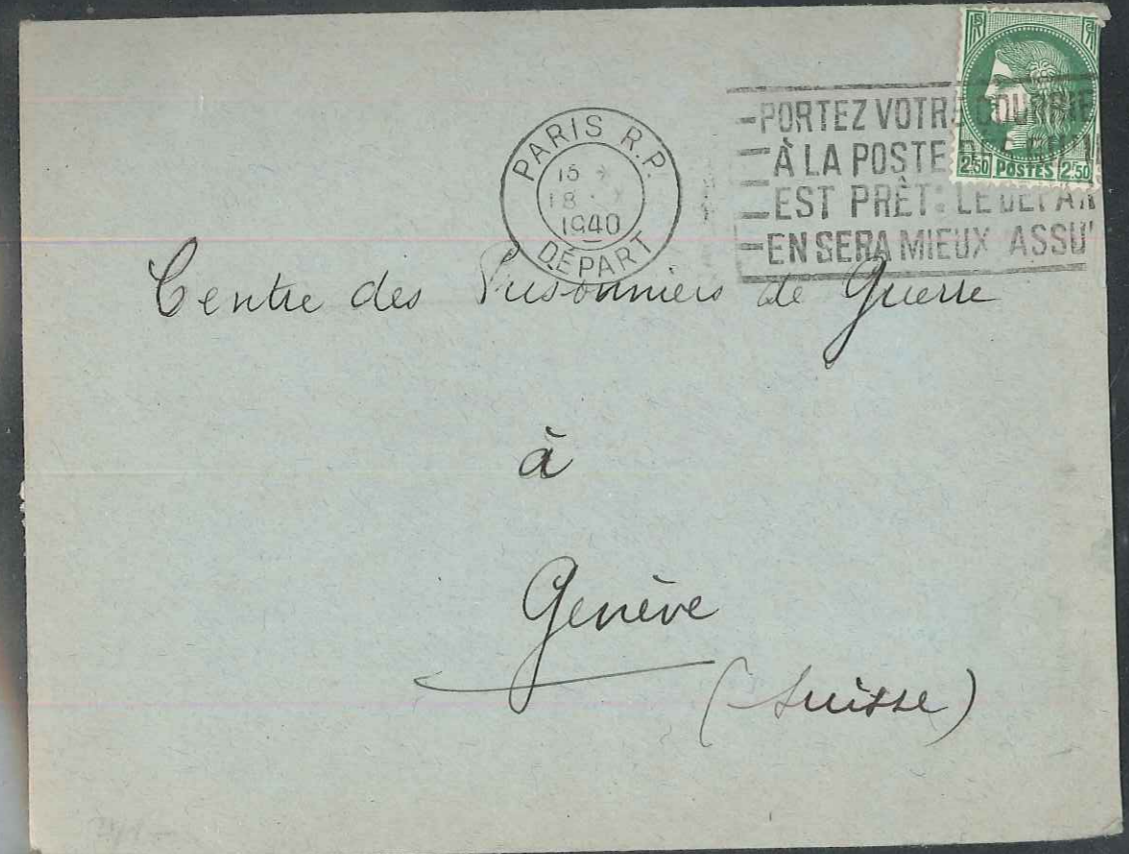 PARIS R.P.
15
18
1940
DÉPART
PORTEZ VOTRE COURRIE
À LA POSTE
EST PRÊT: LE DÉPAR
EN SERA MIEUX ASSU
RF
2F50 POSTES 2F50
Centre des Prisonniers de Guerre
à
Genève
(Suisse)